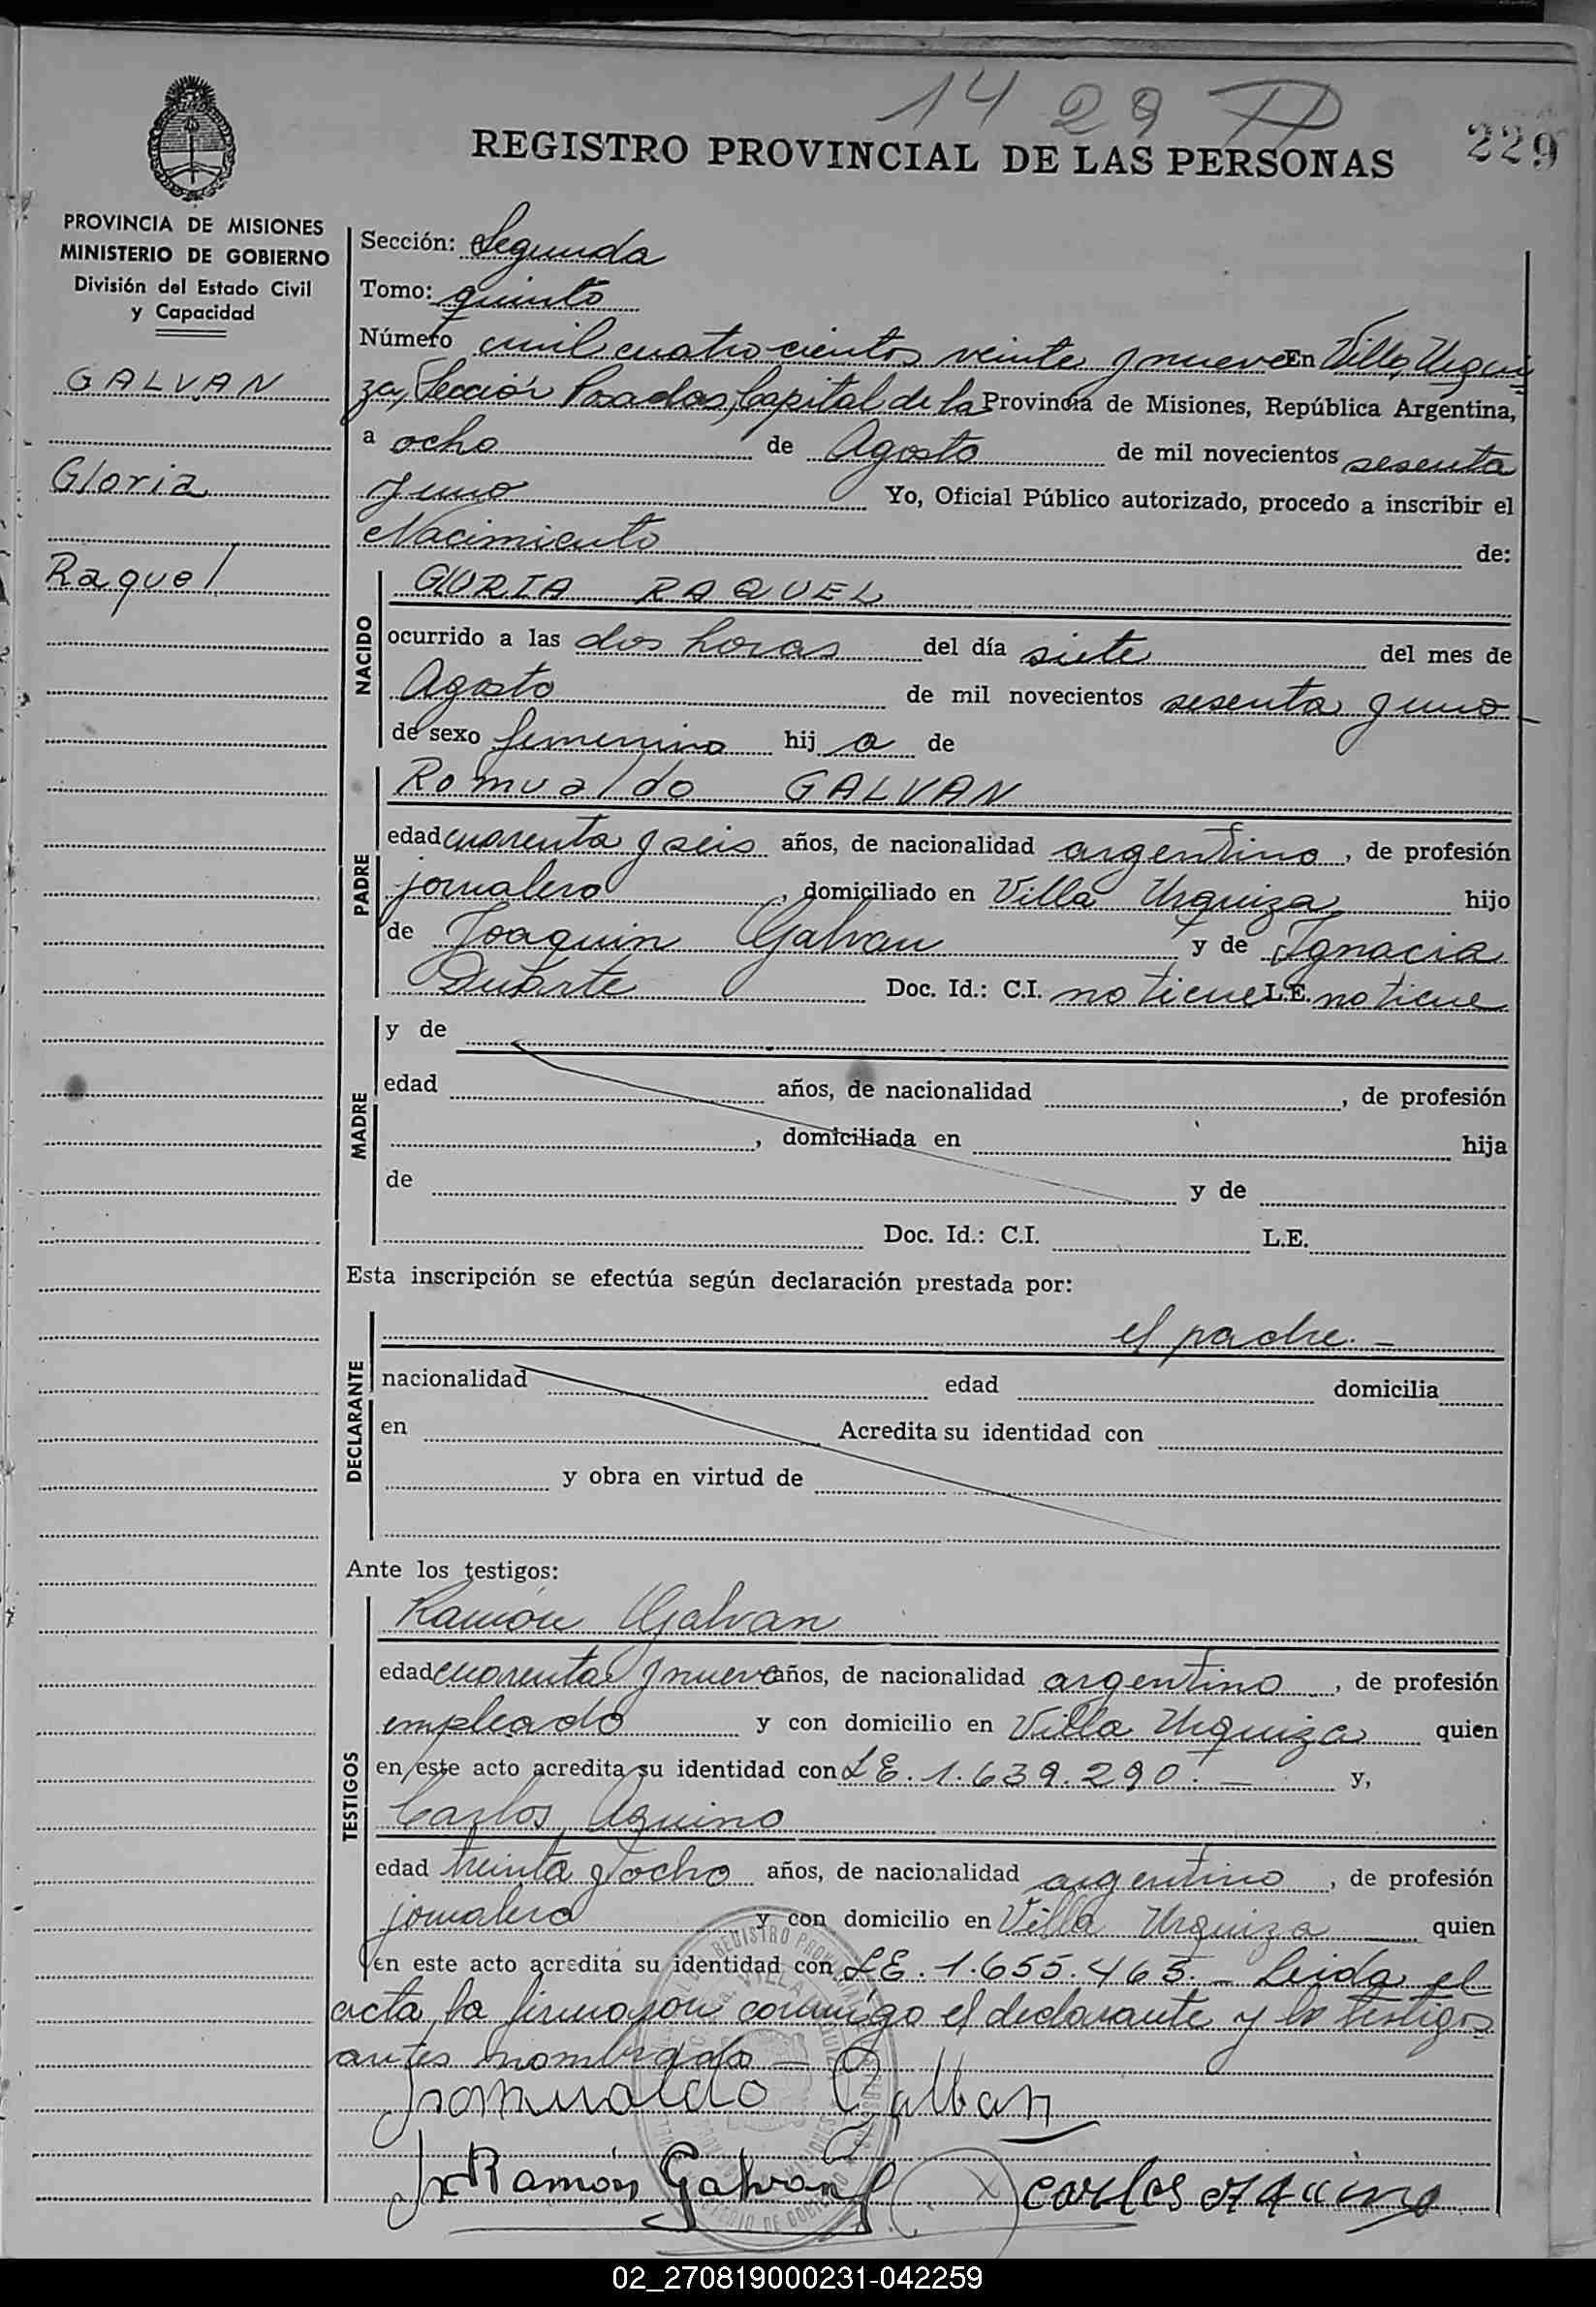 14 29
229
REGISTRO PROVINCIAL DE LAS PERSONAS
PROVINCIA DE MISIONES
MINISTERIO DE GOBIERNO
División del Estado Civil
y Capacidad
GALVAN
Gloria
Raquel
Sección: Segunda
Tomo: quinto
Número mil cuatrocientos veinte y nueve En Villa Urqui
za, Sección Posadas, Capital de la Provincia de Misiones, República Argentina,
a ocho de Agosto de mil novecientos sesenta
y uno Yo, Oficial Público autorizado, procedo a inscribir el
Nacimiento de:
NACIDO
GLORIA RAQUEL
ocurrido a las dos horas del día siete del mes de
Agosto de mil novecientos sesenta y uno
de sexo femenino hij a de
PADRE
Romualdo GALVAN
edad cuarenta y seis años, de nacionalidad argentino, de profesión
jornalero, domiciliado en Villa Urquiza hijo
de Joaquin Galvan y de Ignacia
Duarte Doc. Id.: C.I. no tiene L.E. no tiene
MADRE
y de
edad años, de nacionalidad , de profesión
, domiciliada en hija
de y de
Doc. Id.: C.I. L.E.
Esta inscripción se efectúa según declaración prestada por:
DECLARANTE
el padre. –
nacionalidad edad domicilia
en Acredita su identidad con
y obra en virtud de
Ante los testigos:
TESTIGOS
Ramón Galvan
edad cuarenta y nueve años, de nacionalidad argentino, de profesión
empleado y con domicilio en Villa Urquiza quien
en este acto acredita su identidad con L.E. 1.639.290. – y,
Carlos Aquino
edad treinta y ocho años, de nacionalidad argentino, de profesión
jornalero y con domicilio en Villa Urquiza quien
en este acto acredita su identidad con L.E. 1.655.463. – Leida el
acta, la firmaron conmigo el declarante y los testigos
antes nombrados –
Romualdo Galban
Ramón Galvan Carlos Aquino
02_270819000231-042259